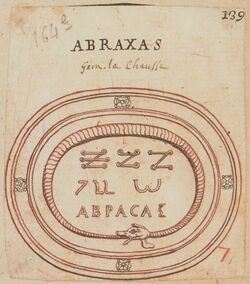 139
164e
ABRAXAS
Gem. la Chausse
ΑΒΡΑCΑΞ
7